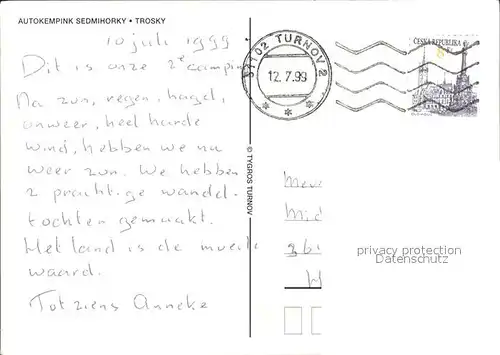 AUTOKEMPINK SEDMIHORKY • TROSKY
10 juli 1999
Dit is onze 2e camping
Na zon, regen, hagel,
onweer, heel harde
wind, hebben we nu
weer zon. We hebben
2 prachtige wandel-
tochten gemaakt.
Het land is de moeite
waard.
Tot ziens Anneke
© TYGROS TURNOV
51102 TURNOV 2
12.7.99
ČESKÁ REPUBLIKA
Meve
privacy protection
Datenschutz